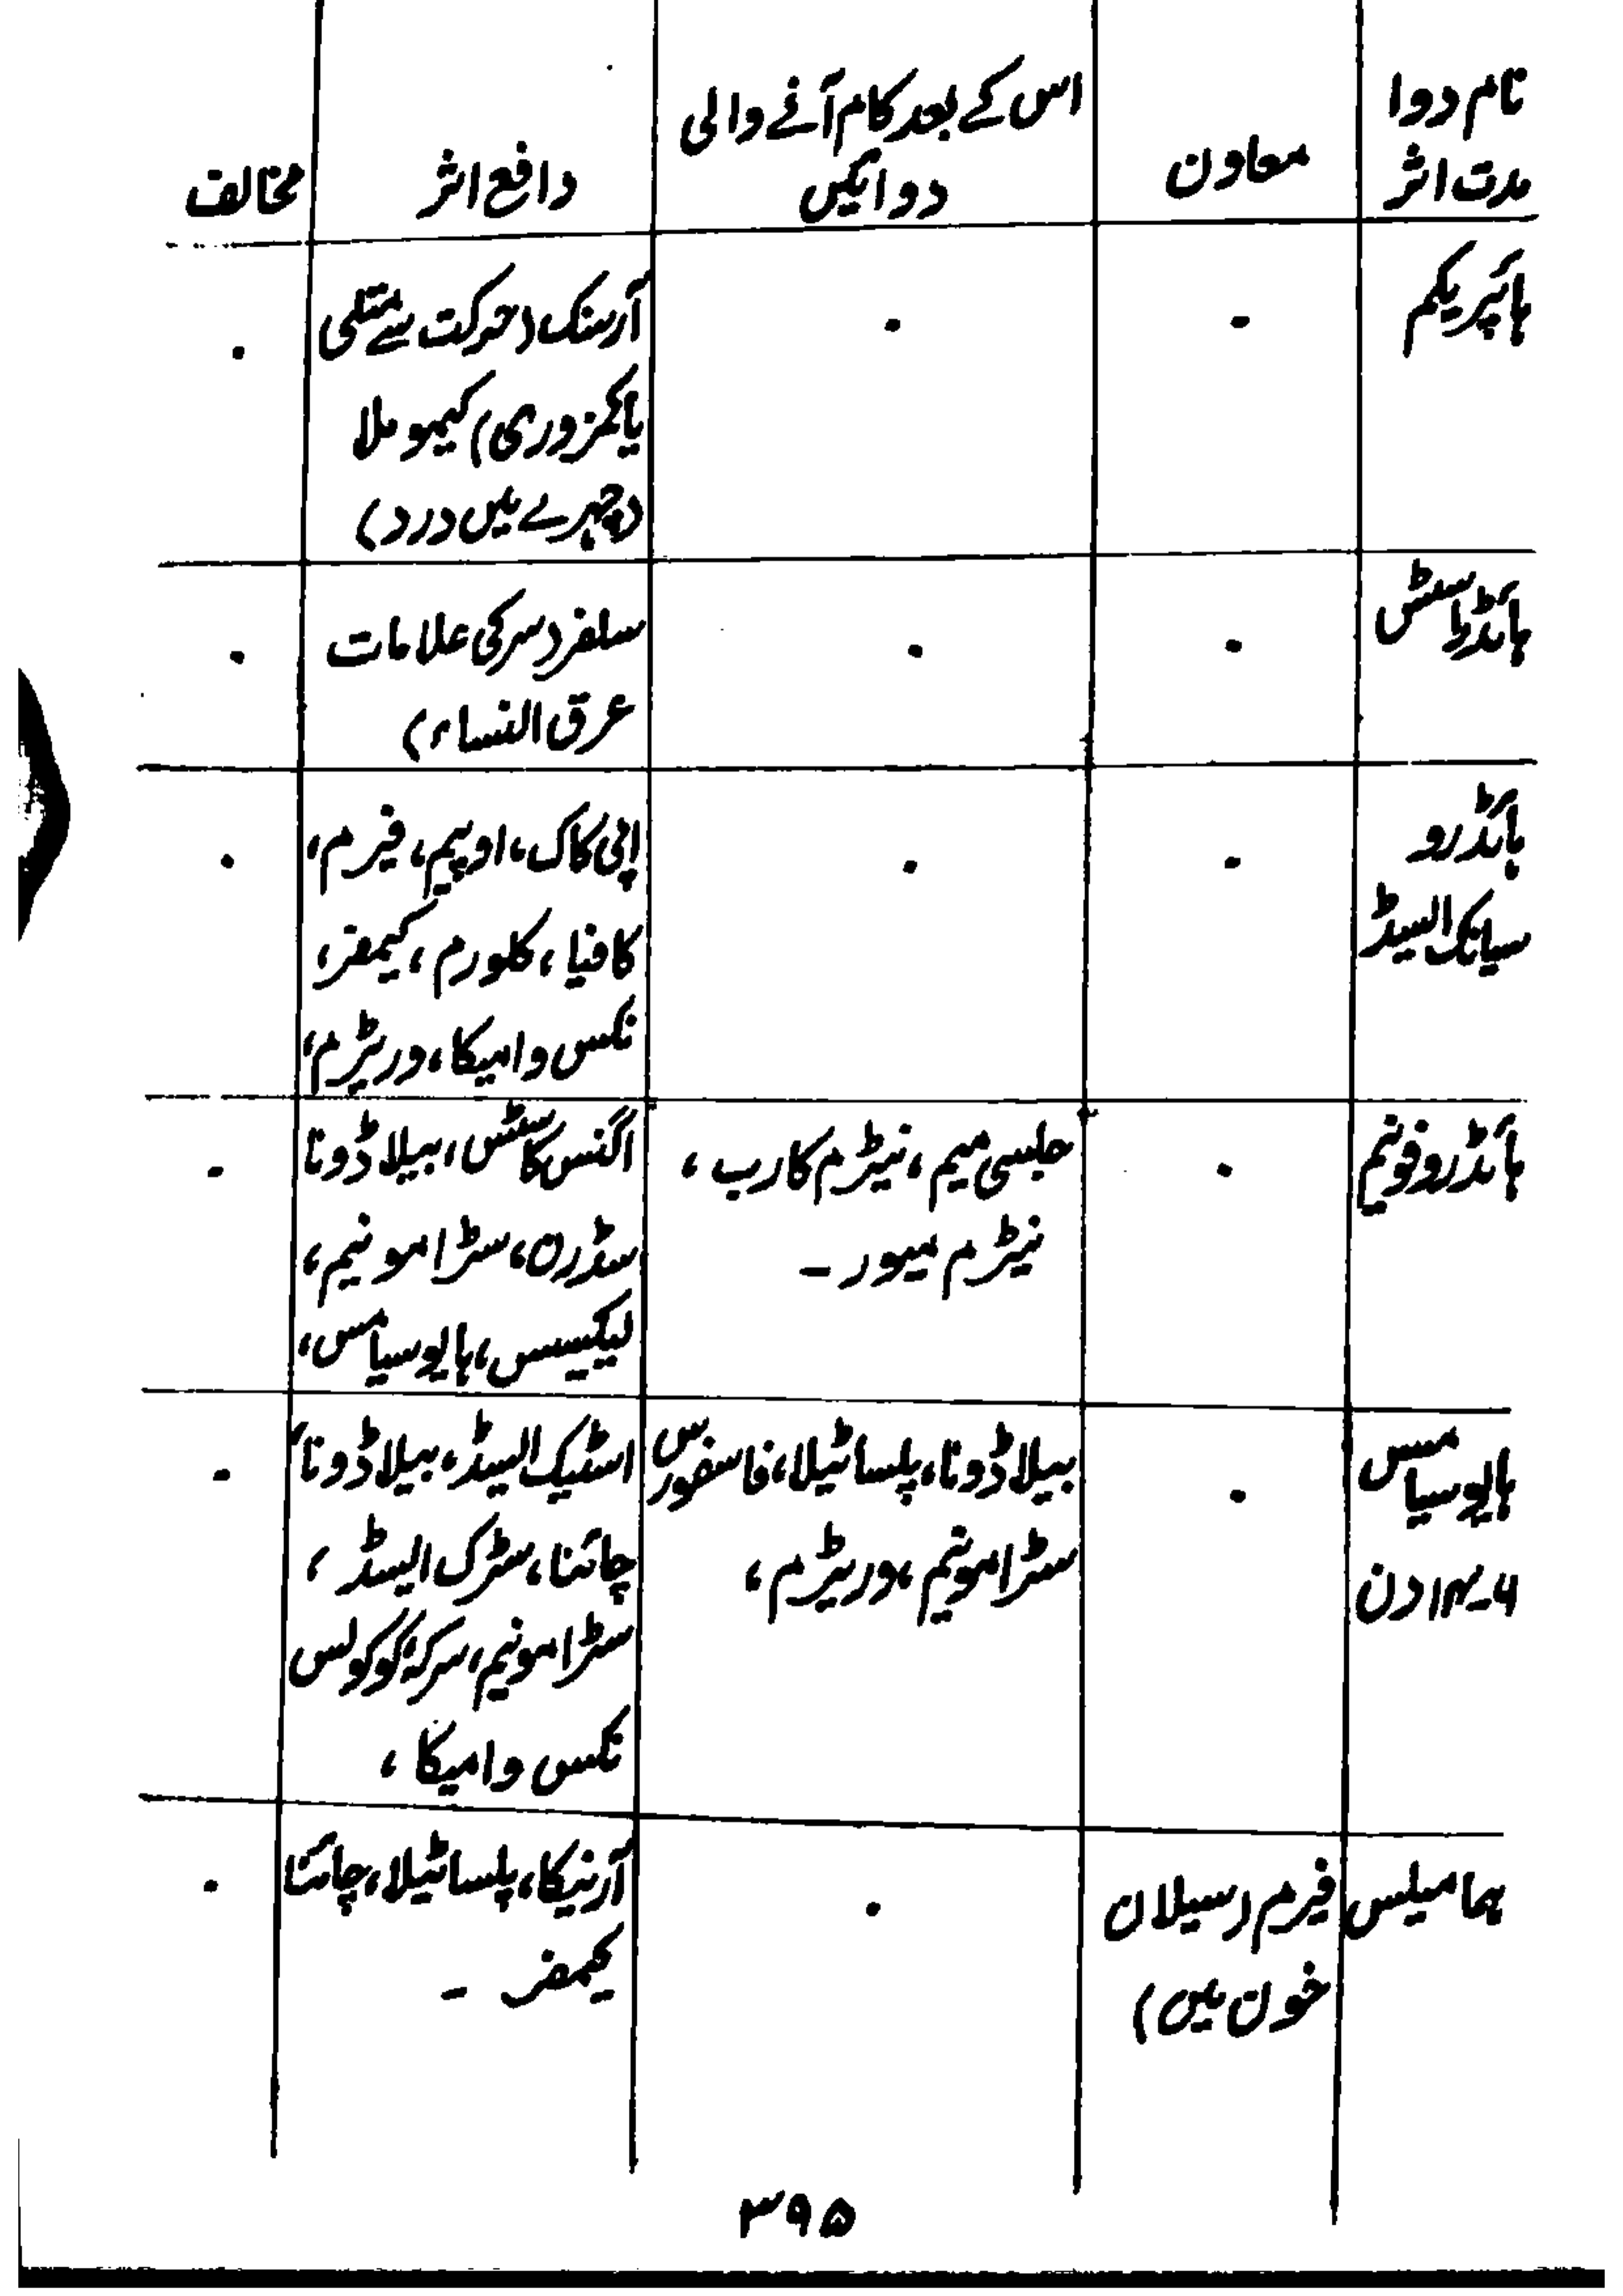 نام دوا
مدت اثر
معاون
اس کے بعد کام آنے والی
دوائیں
دافع اثر
مخالف
ہائپریکم
۰
۰
آرسنک (حرکت سے متلی
یا کمزوری) کیمومِلا
(چہرے میں درد)
۰
ہائڈراسٹس
۰
۰
سلفر (سر کی علامات
عرق النساء)
۰
ہائڈرو
سیانک ایسڈ
۰
۰
اپی کاک، اوپیم، فیرم،
کافیا، کلورم، کیمفر،
نکس وامیکا، وریٹرم،
۰
ہائڈروفونیم
۰
جلسی میم، نیٹرم کارب،
نیٹرم میور۔
اگنس کاسٹس، بیلا ڈونا
سڈرن، سٹرامونیم،
لیکیسس، ہایوسیامس،
۰
ہایوسیامس
۶۔۱۴ دن
۰
بیلا ڈونا، پلساٹیلا، فاسفورس
سٹرامونیم، وریٹرم،
اسٹیک ایسڈ، بیلا ڈونا،
چائنا، سٹرک ایسڈ،
سٹرامونیم، سرکہ، کوکولس
نکس وامیکا،
۰
ہمامیلس
فیرم (سیلان
خون میں)
۰
آرنیکا، پلساٹیلا، چائنا
کیمفر۔
۰
۳۹۵